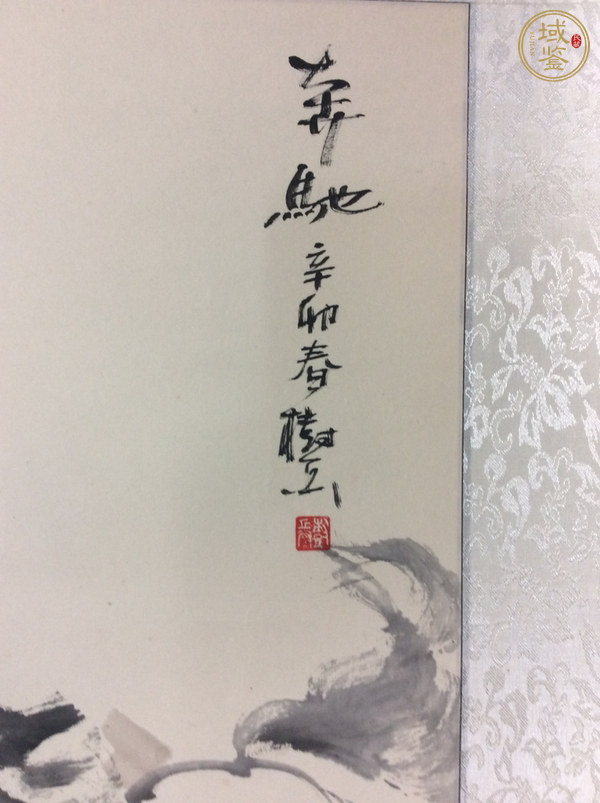 奔
馳
辛
卯
春
樹
域鉴
YUJIAN